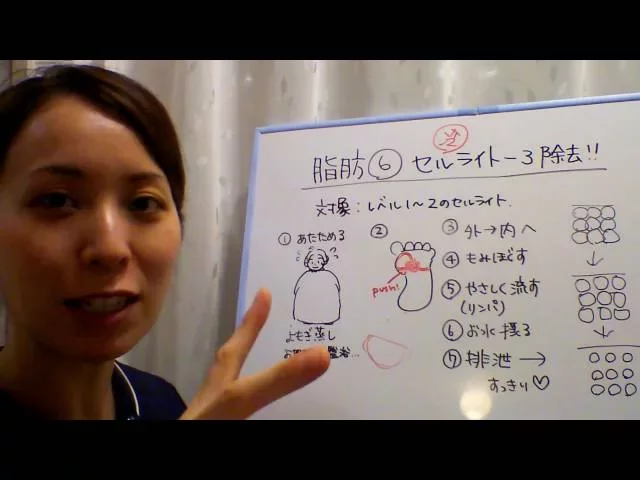 脂肪⑥ セルライト-3除去!!
対象:レベル1~2のセルライト.
① あたためる
よもぎ蒸し
盤浴...
②
push!
③ 外→内へ
④ もみほぐす
⑤ やさしく流す
(リンパ)
⑥ お水摂る
⑦ 排泄→
すっきり♡